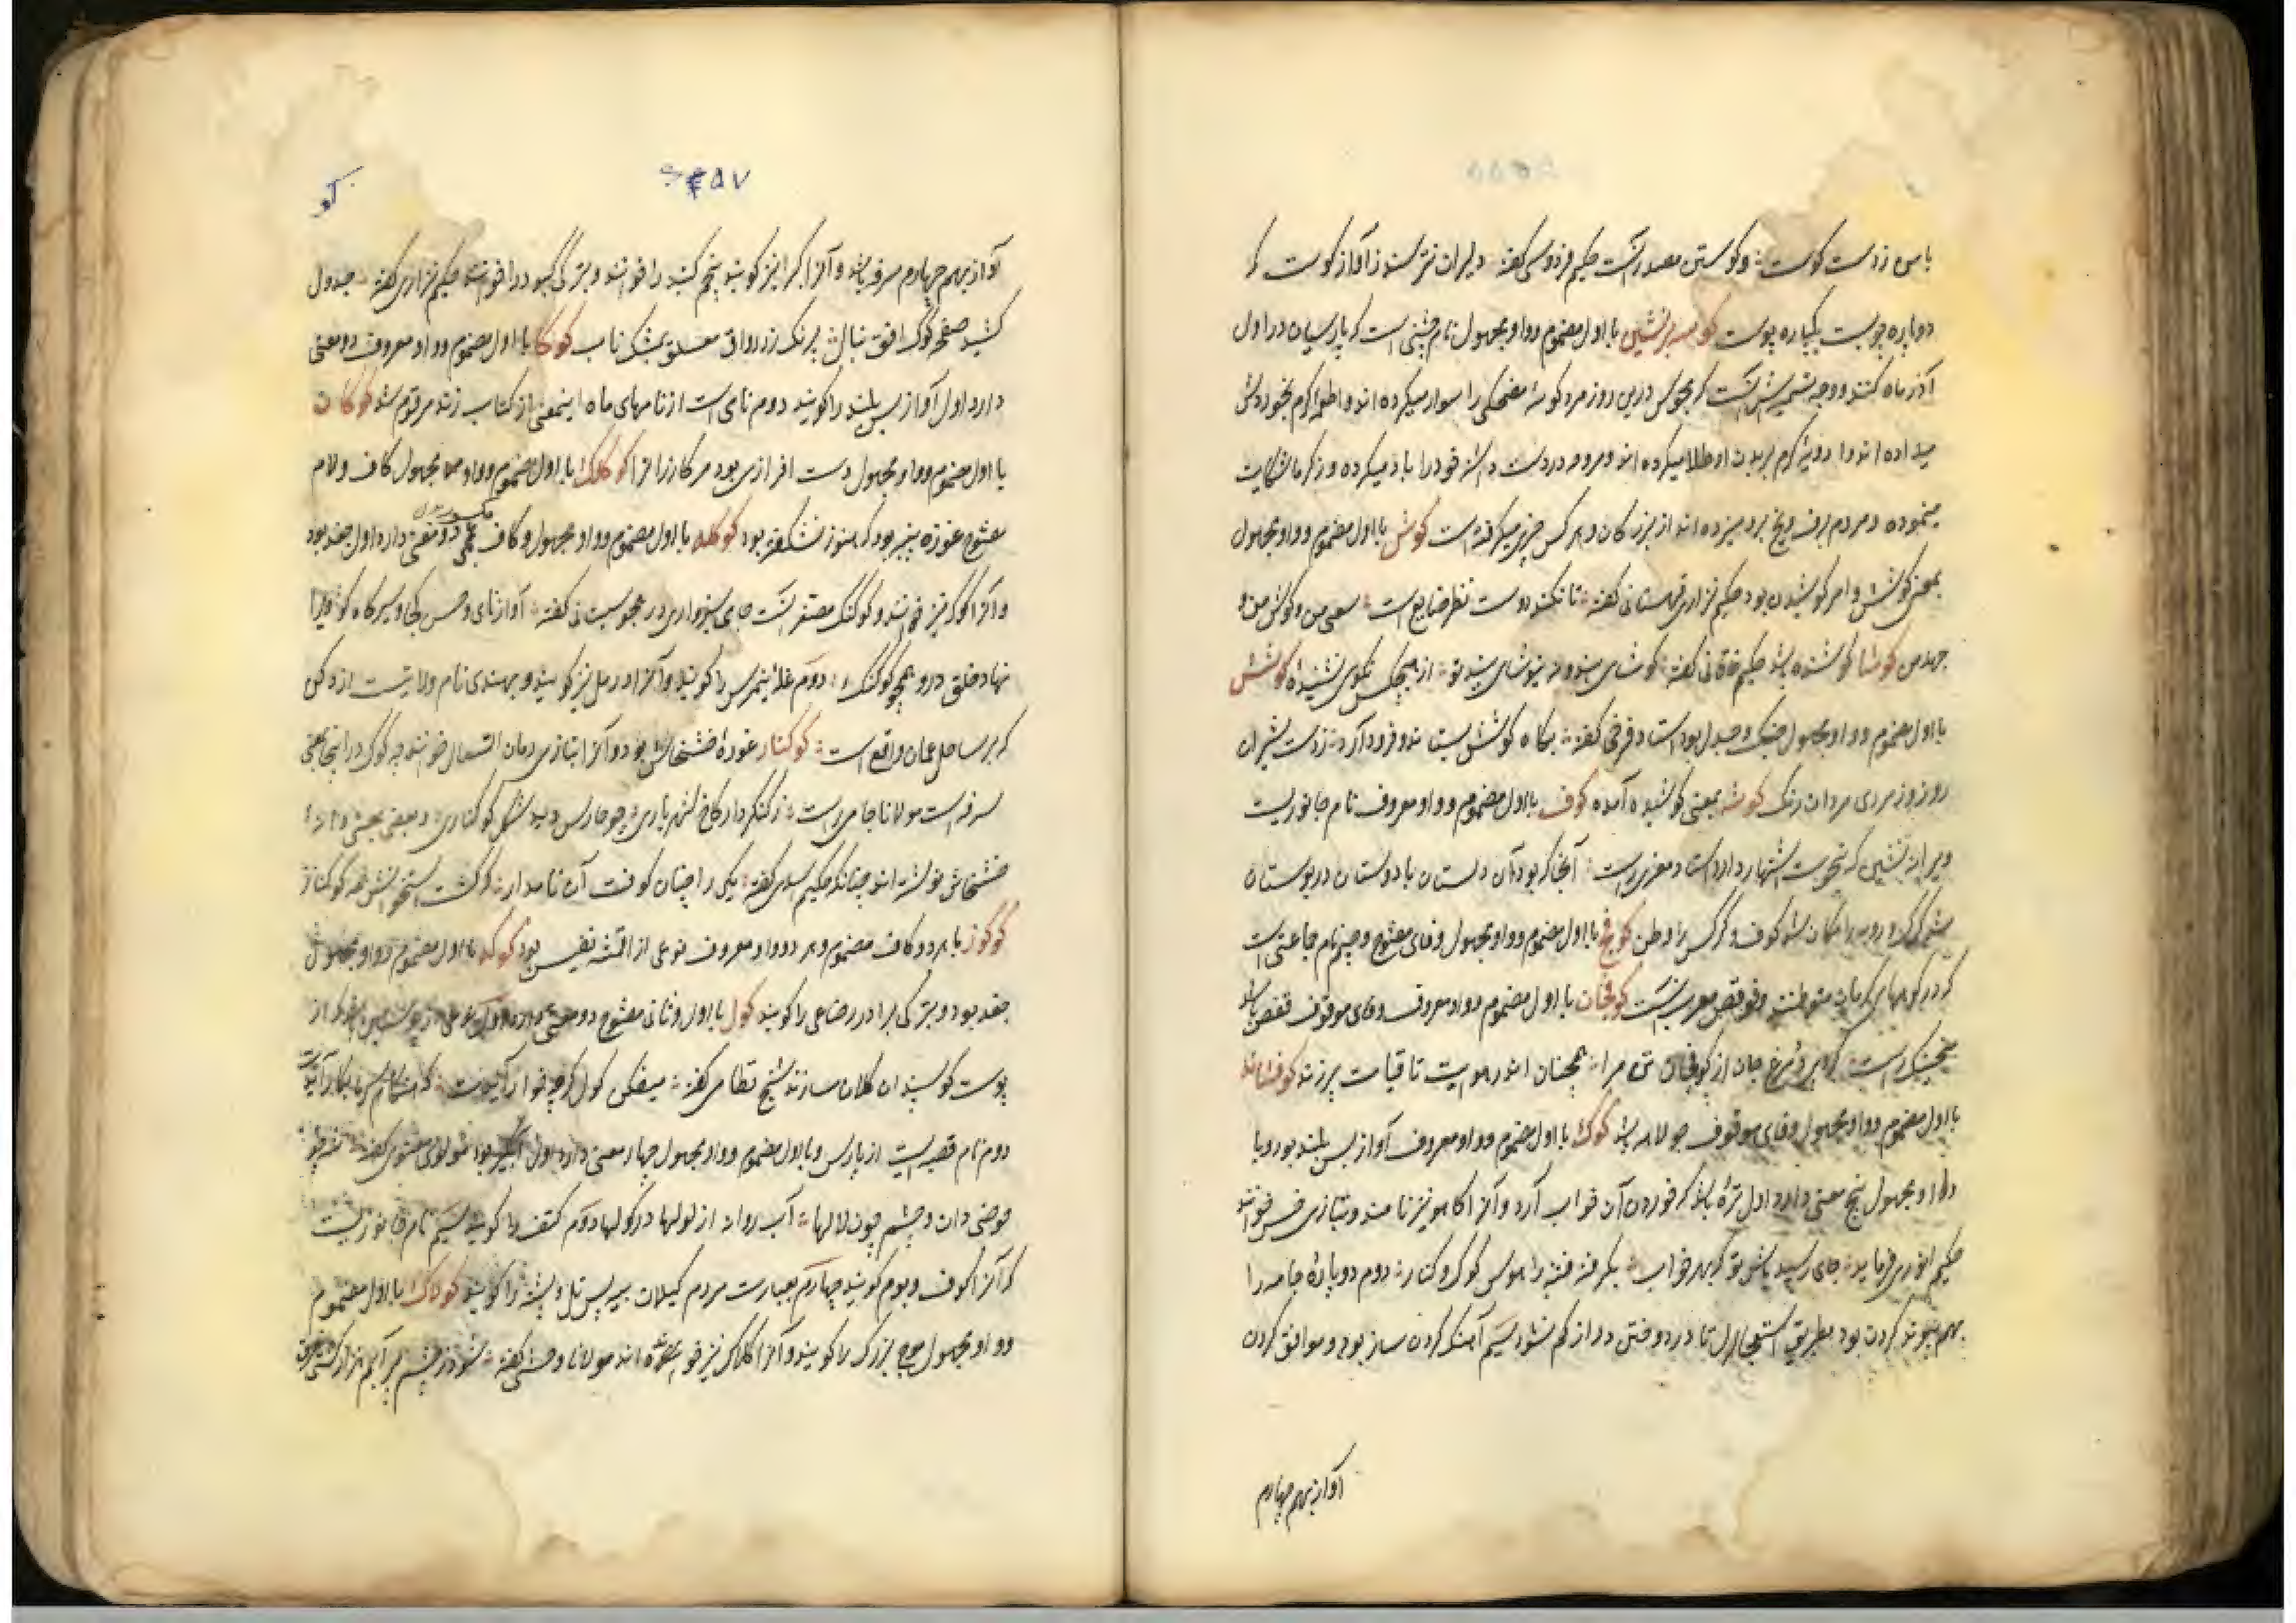 با من زدست کوست و کوستن مصدر آنست حکیم فردوسی گفته دلیران نترسند ز آواز کوست که
دوباره چوبست یکپاره پوست کوسه برنشین با اول مضموم و واو مجهول نام جشنی است که پارسیان در اول
آذر ماه کنند و وجه تسمیه‌اش آنست که مجوس درین روز مرد کوسهٔ مضحکی را سوار میکرده اند و اطعمه گرم بخوردش
میداده اند و ادویهٔ گرم بر بدن او طلا میکرده اند و مروحه در دست داشته خود را باد میکرده و از گرما شکایت
مینموده و مردم برف و یخ برو میزده اند از بزرگان و هر کس چیزی میگرفته است کوش با اول مضموم و واو مجهول
بمعنی کوشش و امر کوشیدن بود حکیم نزاری قهستانی گفته تا نکند دوست نظر ضایع است سعی من و کوش من و
جهد من کوشا کوشنده باشد حکیم خاقانی گفته کوشش
با اول مضموم و واو مجهول جنگ و جدل بود استاد فرخی گفته بگاه کوشش بستاند و فرود آرد ز دست شیران
روز و ز مردی مردان رنگ کوشه بمعنی کوشیده آمده کوف با اول مضموم و واو معروف نام جانوریست
ویرانه نشین که بنحوست اشتهار دارد استاد معزی راست آنجا که بود آن دلستان با دوستان در بوستان
شد گرگ و روبه را مکان شد کوف و کرکس را وطن کوفج با اول مضموم و واو مجهول و فای مفتوح و جیم نام جماعتی است
که در کوههای کرمان متوطنند و قوفص معرب آنست کوفخان با اول مضموم و واو معروف و فای موقوف قفص باشد
جان از کوفخان تن مرا همچنان اندر هوایت تا قیامت پرزند کوفشانه
با اول مضموم و واو مجهول و فای موقوف جولاهه باشد کوک با اول مضموم و واو معروف آواز بس بلند بود و با
واو مجهول پنج معنی دارد اول ترهٔ باشد که خوردن آن خواب آرد و آنرا کاهو نیز نامند و بتازی خس خوانند
حکیم انوری فرماید جای رسید پاس تو کز بهر خواب بگرفته فتنه را هوس کوک و کنار دوم دو پارهٔ جامه را
بهم پیوند کردن بود بطریق استعجال تا در دوختن دراز کم نشود سیم آهنگ کردن ساز بود و موافق کردن
آواز بهم چهارم
۵۵۷
کو
آواز بهم چهارم سرفه باشد و آنرا کرا نیز گویند پنجم گنبد را خوانند و بترکی کبود را خوانند حکیم نزاری گفته جدول
کشید صفحهٔ کوک افق بنال پرنگ زد رواق معلق بمشک ناب کوکا با اول مضموم و واو معروف دو معنی
دارد اول آواز بس بلند را گویند دوم نامی است از نامهای ماه اینمعنی از کتاب زند مرقوم شد کوکان
با اول مضموم و واو مجهول دست افزاری بود مر کارزانرا کوکلک با اول مضموم و واو مجهول کاف و لام
مفتوح غوزه پنبه بود که هنوز نشکفته بود کوکله با اول مضموم و واو مجهول و کاف عجمی دو معنی دارد اول جغد بود
و آنرا کوکر نیز خوانند و کوکنک مصغر آنست جامی سبزواری در هجو سیستانی گفته
نهاد خلق درو همچو کوکنک دوم غله نیم‌رس را گویند و آنرا دریل نیز گویند و بهندی نام ولایتیست از دکن
که بر ساحل عمان واقع است کوکنار غوزهٔ خشخاش بود و آنرا بتازی رمان السعال خوانند چه کوک در اینجا بمعنی
سرفه است مولانا جامی راست ز کنگردار کاخ شهریاری چو حارس دید شکل کوکناری و بعضی بمعنی دانهٔ
خشخاش نوشته اند چنانکه حکیم اسدی گفته یکی را چنان کوفت آن نامدار که گشت استخوانش همه کوکنار
کوکوز با هر دو کاف مضموم و هر دو واو معروف نوعی از اقمشهٔ نفیس بود کوکه با اول مضموم و واو مجهول
جغد بود و بترکی برادر رضاعی را گویند کول با اول و ثانی مفتوح دو معنی دارد اول نوعی از پوستین باشد که از
پوست گوسپندان کلان سازند شیخ نظامی گفته میفکن کول گرچه خوار آیدت که هنگام سرما بکار آیدت
دوم نام قصبه ایست از پارس و با اول مضموم و واو مجهول چهار معنی دارد اول آبگیر بود مولوی معنوی گفته
حوضی دان و چشم چون لولها آب روانه از لولها در کولها دوم کتف را گویند سیم نام جانوریست
که آنرا کوف و بوم گویند چهارم بعبارت مردم گیلان تل و پشته را گویند کولاک با اول مضموم
و واو مجهول موج بزرگ را گویند و آنرا کلاک نیز خوانده اند مولانا وحشی گفته